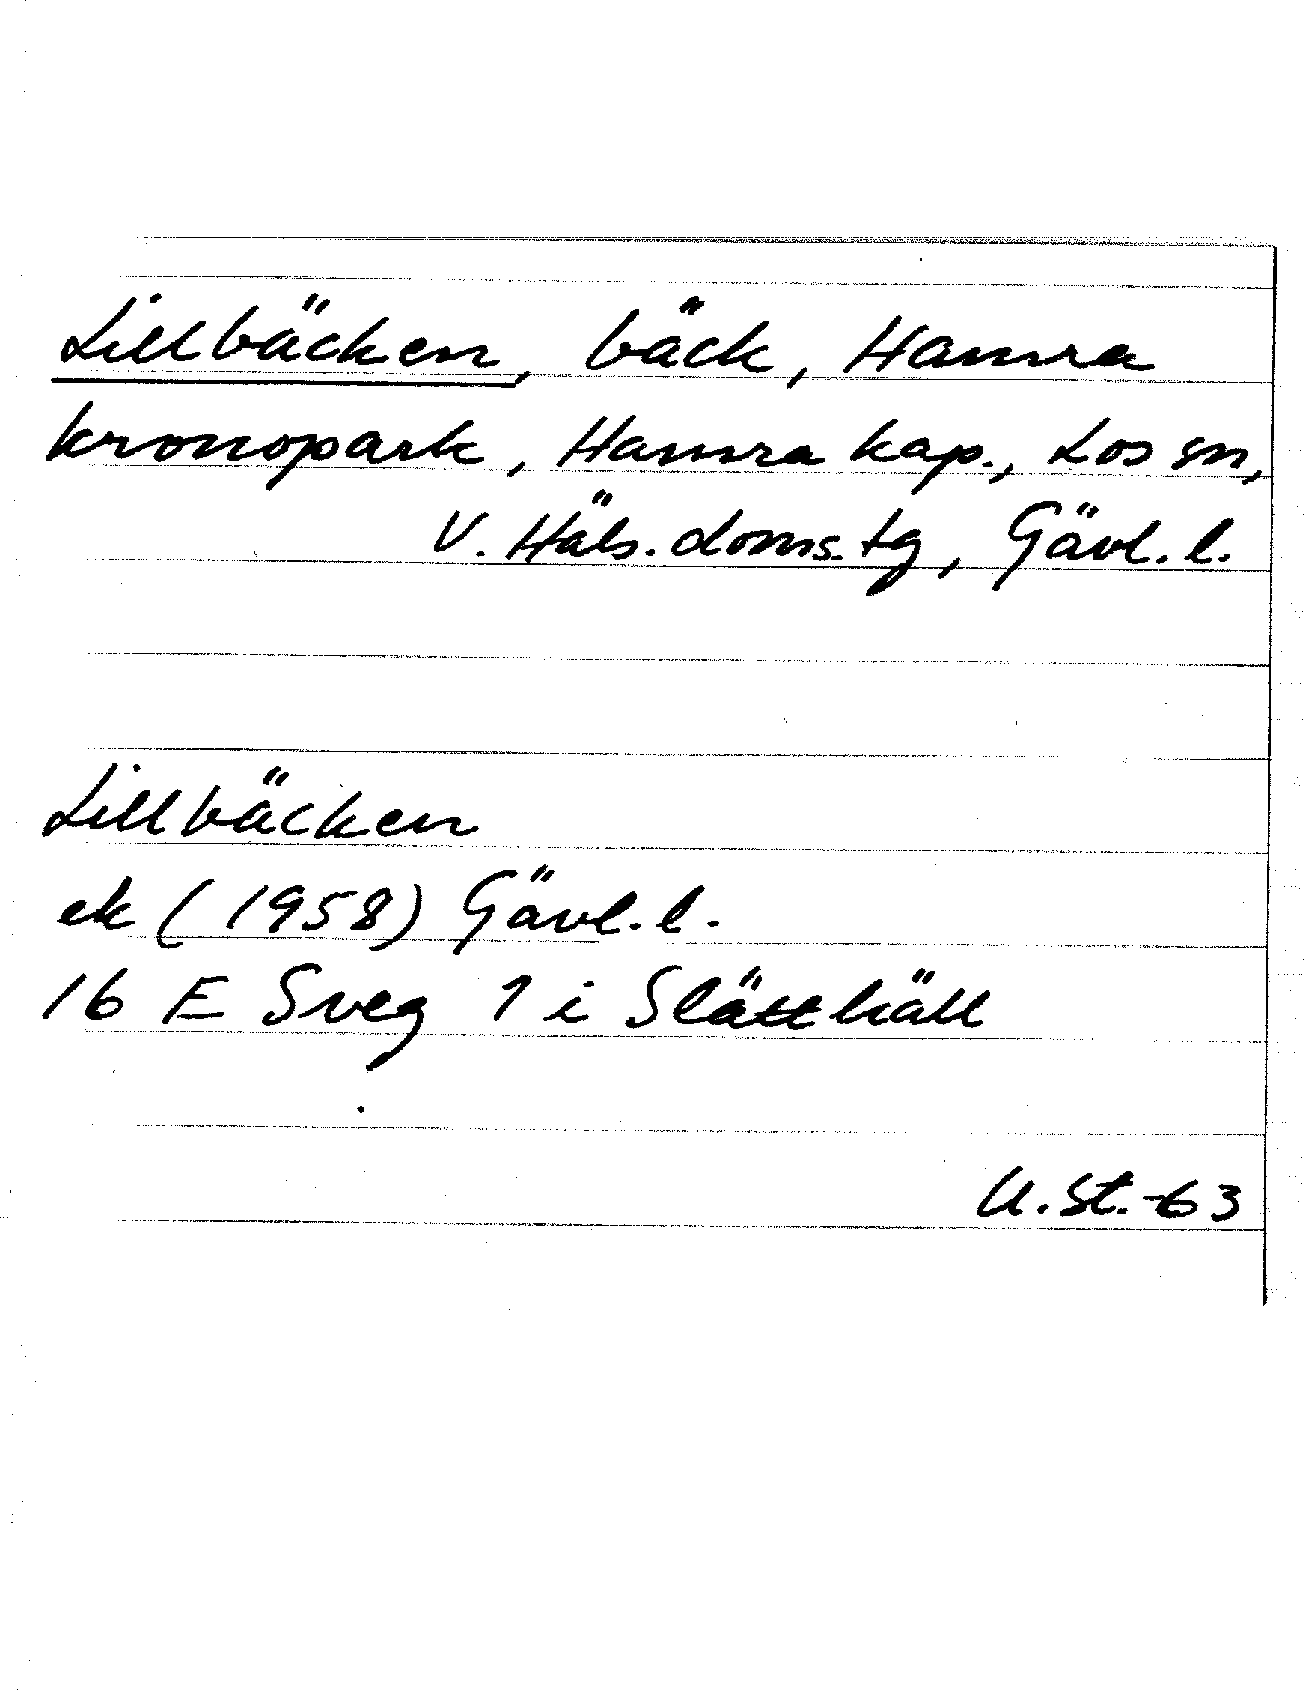 Lillbäcken, bäck, Hamra
kronopark, Hamra kap., Los sn,
V. Häls. doms. tg, Gävl. l.
Lillbäcken
ek (1958) Gävl. l.
16 E Sveg 1 i Slätthäll
U. St. -63